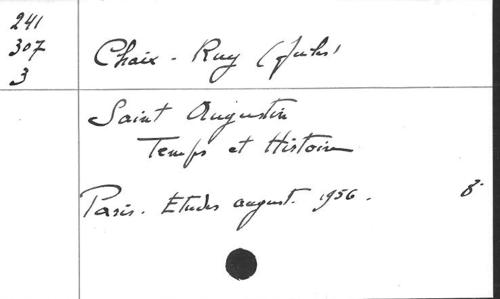 241
307
3
Chaix - Ruy (Jules)
Saint Augustin
Temps et Histoire
Paris. Etudes august. 1956. 8°